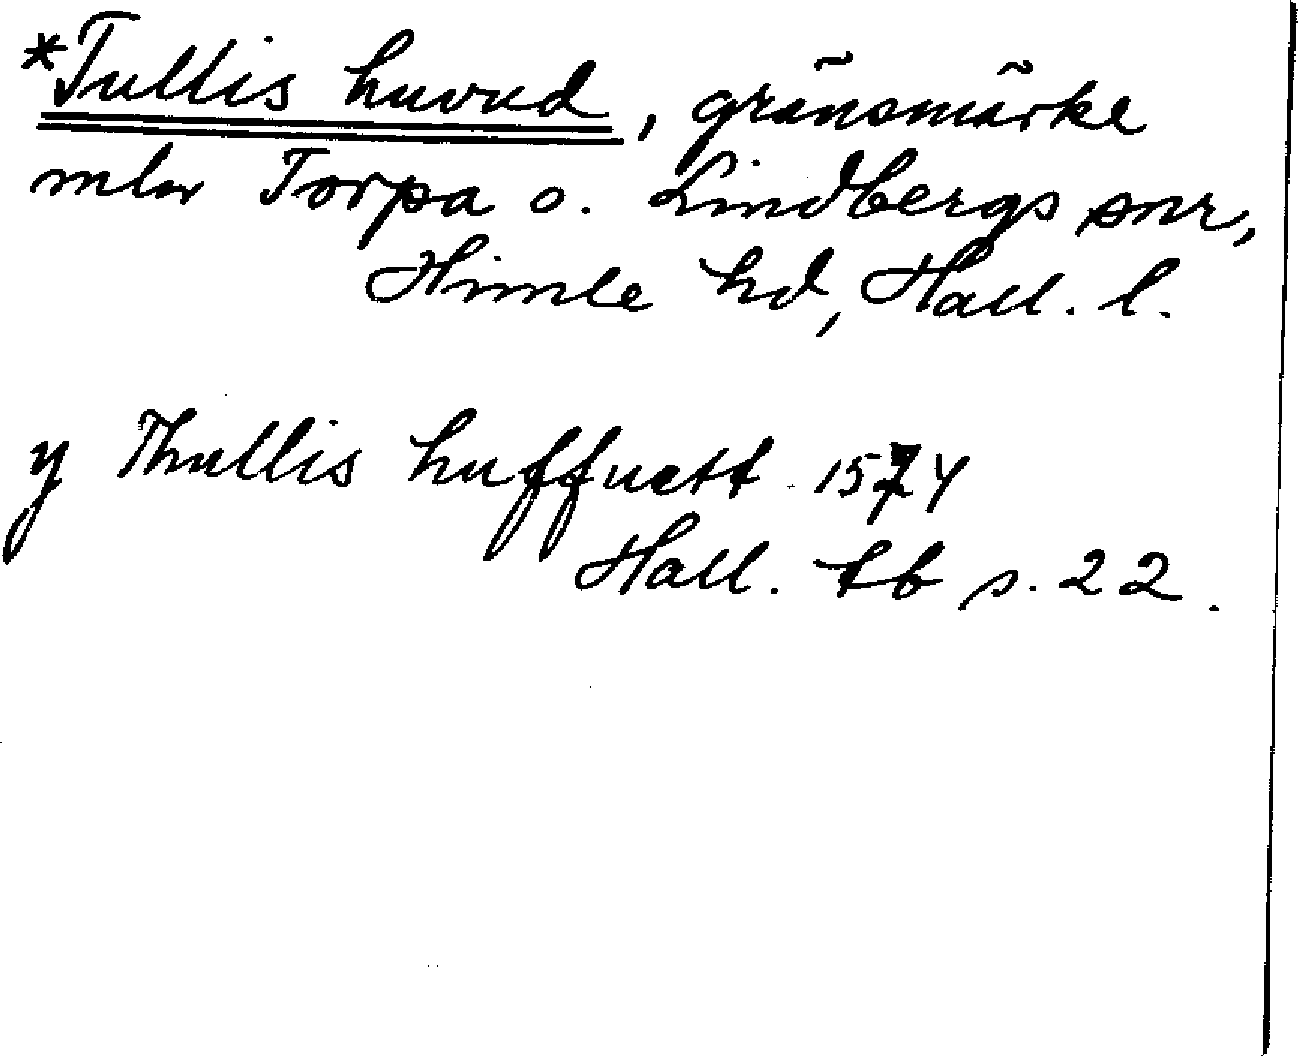 *Tullis huvud, gränsmärke
mln Torpa o. Lindbergs snr,
Himle hd, Hall. l.
y Thullis huffuett 1574
Hall. tb s. 22.